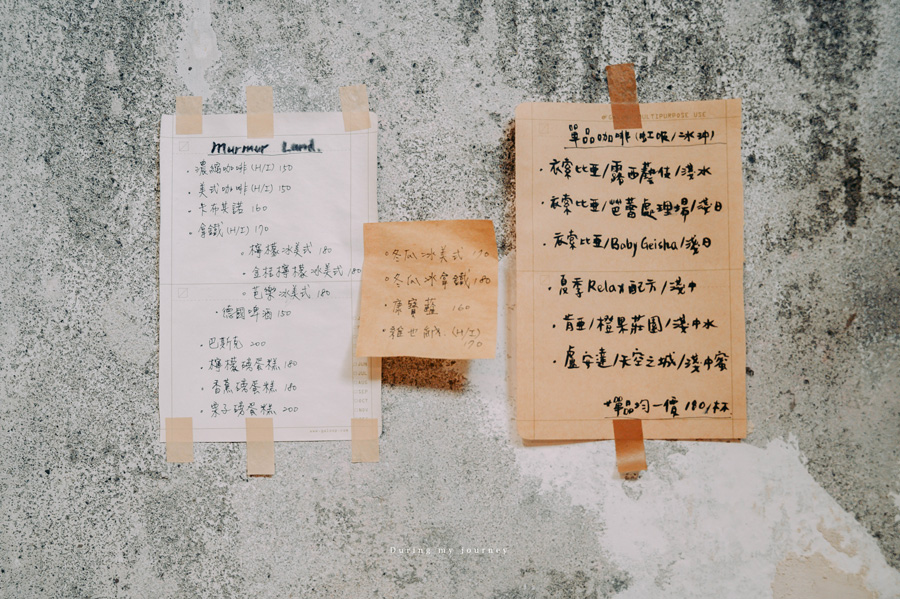 murmur Land.
・濃縮咖啡(H/I) 150
・美式咖啡(H/I) 150
・卡布其諾 160
・拿鐵(H/I) 170
・檸檬冰美式 180
・金桔檸檬冰美式 180
・芭樂冰美式 180
・德國啤酒 150
・巴斯克 200
・檸檬磅蛋糕 180
・香蕉磅蛋糕 180
・栗子磅蛋糕 200
・冬瓜冰美式 170
・冬瓜冰拿鐵 180
・康寶藍 160
(H/I)
170
MULTIPURPOSE USE
單品咖啡(虹吸/冰沖)
・衣索比亞/露西藝伎/淺水
・衣索比亞/芭蕾處理場/淺日
・衣索比亞/Baby Geisha/淺日
・夏季Relax配方/淺中
・肯亞/橙果莊園/淺中水
・盧安達/天空之城/淺中蜜
*單品均一價 180/杯
During my journey